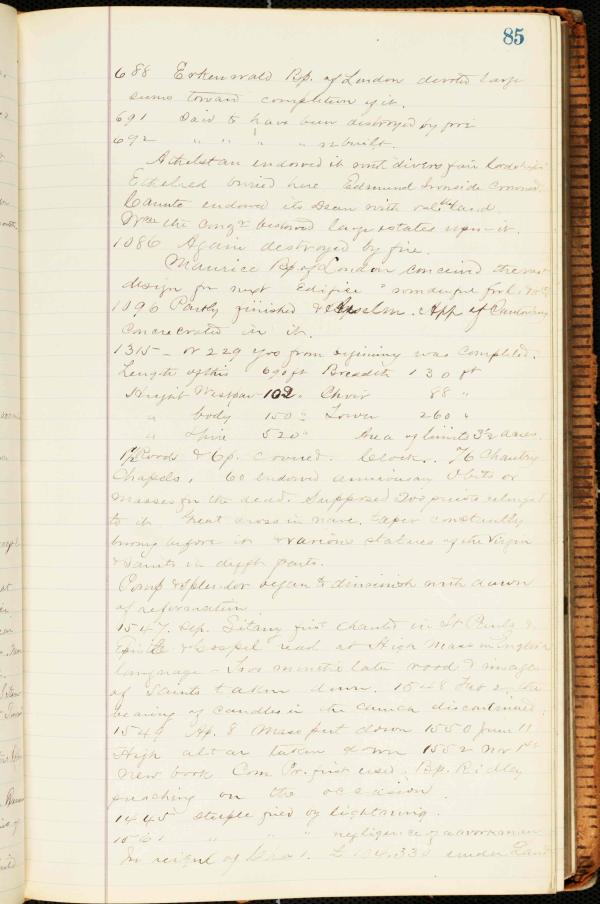 85
688 Erkenwald Bp. of London devoted large
sums toward completion of it.
691 Said to have been destroyed by fire
692 " " " " rebuilt.
Athelstan endowed it with divers fair Lordships
Ethelred buried here Edmund Ironside crowned
Canute endowed its Dean with land.
Wm the Conqr bestowed large estates upon it.
1086 Again destroyed by fire.
Maurice Bp. of London conceived the vast
design for next Edifice "
1096 Partly finished & Anselm. App of Canterbury
concecrated in it.
1315 - or 229 yrs from begining was completed.
Length of this 690 ft Breadth 130 ft
Height West par 102 " Choir 88 "
" body 150 " Tower 260 "
" Spire 520 " Area of limits 3½ acres.
Roods & 6p. Clock. 76 Chantry
Chapels. 60 endowed aniversary Obits or
masses for the dead. Supposed 200 priests belonged
to it. Great cross in nave. taper constantly
burng before it & various statues of the Virgin
& saints in difft parts.
Pomp & Splendor began to diminish with dawn
of reformation.
1547. Sep. Litany first chanted in St Pauls &
Epistle & Gospel read at High Mass in English
language - Two months late rood & images
of Saints taken down. 1548 Feb 2 the
bearing of candles in the church discontinued.
1549 Ap. 8 Mass put down 1550 June 11
High altar taken down 1552 Nov 1st
New book Com Pr. first used. Bp. Ridley
preaching on the occasion
1445 steeple fired by lightning.
1561 " " " negligence of a workman
In reign of Chas 1. £ 104.330 under Laud